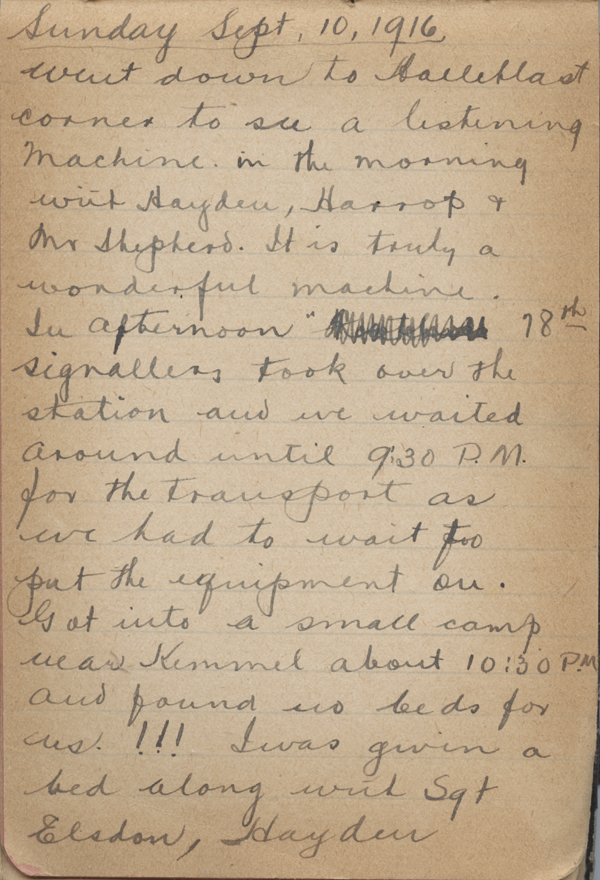 Sunday Sept, 10, 1916,
went down to Halleblast
corner to see a listening
Machine. in the morning
with Hayden, Harrop &
Mr Shepherd. It is truly a
wonderful machine.
In afternoon " 78th
signallers took over the
station and we waited
around until 9:30 P.M.
for the transport as
we had to wait too
put the equipment on.
Got into a small camp
near Kemmel about 10:30 P.M
and found no beds for
us. !!! I was given a
bed along with Sgt
Elsdon, Hayden